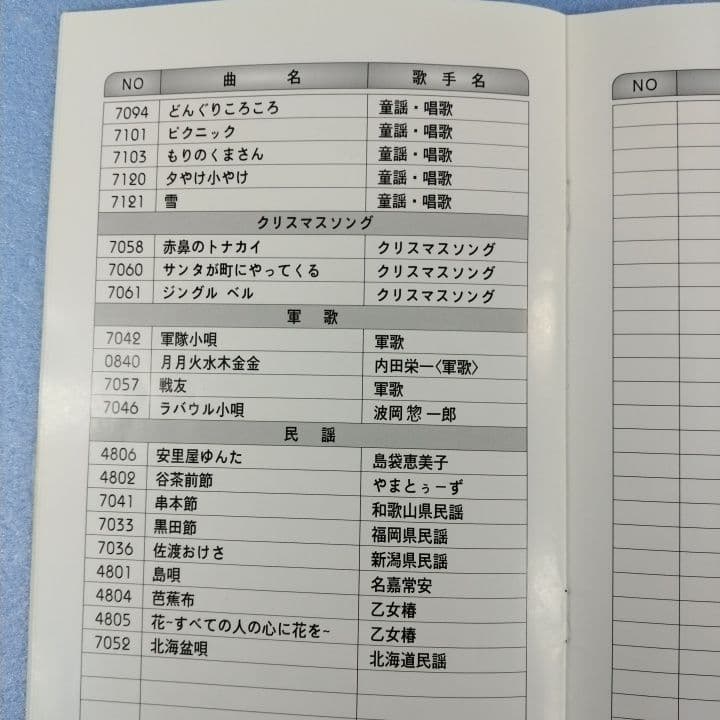 NO 曲 名 歌 手 名
7094 どんぐりころころ 童謡・唱歌
7101 ピクニック 童謡・唱歌
7103 もりのくまさん 童謡・唱歌
7120 夕やけ小やけ 童謡・唱歌
7121 雪 童謡・唱歌
クリスマスソング
7058 赤鼻のトナカイ クリスマスソング
7060 サンタが町にやってくる クリスマスソング
7061 ジングル ベル クリスマスソング
軍 歌
7042 軍隊小唄 軍歌
0840 月月火水木金金 内田栄一〈軍歌〉
7057 戦友 軍歌
7046 ラバウル小唄 波岡 惣一郎
民 謡
4806 安里屋ゆんた 島袋恵美子
4802 谷茶前節 やまとぅーず
7041 串本節 和歌山県民謡
7033 黒田節 福岡県民謡
7036 佐渡おけさ 新潟県民謡
4801 島唄 名嘉常安
4804 芭蕉布 乙女椿
4805 花~すべての人の心に花を~ 乙女椿
7052 北海盆唄 北海道民謡
NO